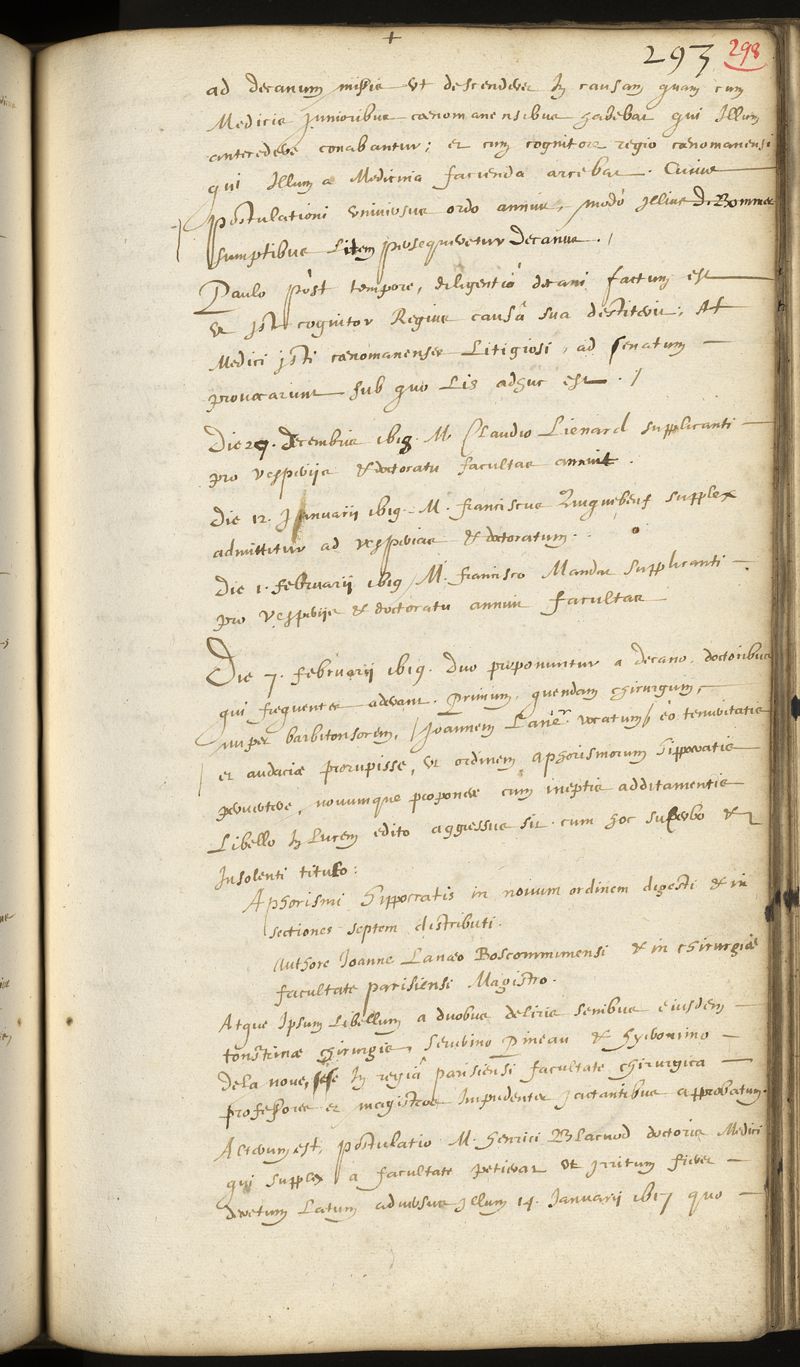 +
293 298
ad decanum missis ut descenderet in causam quam cum
Medicis Junioribus cœnomanensibus habebat qui Illum
antecedere conabantur; et cum cognitore regio cœnomanensi
qui Illum a Medicina facienda arcebat. Cuius
postulationi universus ordo annuit, modò Illius D. Bommer
sumptibus Litem persequeretur Decanus. /
Paulo pòst tempore, diligentiâ decani factum est
ut iste cognitor Regius causâ sua destiterit; At
Medici isti cœnomanenses Litigiosi, ad senatum
provocarunt sub quo Lis adhuc est. /
Die 29. decembris 1618. M. Claudio Lienard supplicanti
pro vesperiis & doctoratu facultas annuit.
Die 12. Januarii 1619. M. franciscus supplex
admittitur ad vesperias & doctoratum.
Die 1. februarii 1619 M. francisco Mandat supplicanti
pro vesperiis & doctoratu annuit facultas
Die 7. februarii 1619. duo proponuntur a decano, doctoribus
qui frequentes aderant. Primum, quendam chirurgum,
nuper barbitonsorem, / Joannem Lanér vocatum / eò temeritatis
et audaciæ prorupisse, ut ordinem aphorismorum hippocratis
pervertere, novumque proponere cum ineptis additamentis
Libello in Lucem edito aggressus sit. cum hoc superbo &
Insolenti titulo:
Aphorismi hippocratis in novum ordinem digesti & in
sectiones septem distributi.
Authore Joanne Lanæo Boscommunensi & in chirurgiæ
facultate parisiensi Magistro.
Atque Ipsum Libellum a duobus deliris senibus eiusdem
tonstrinæ chirurgis, Severino Pineau & Hieronimo
dela noue, sese In regiâ parisiensi facultate chirurgica
professores et magistros Impudenter jactantibus approbatum.
Alterum est, postulatio M. henrici Blacuod doctoris Medici
qui supplex a facultate petierat ut irritum fieret
decretum Latum adversus illum 14. Januarii 1617 quo